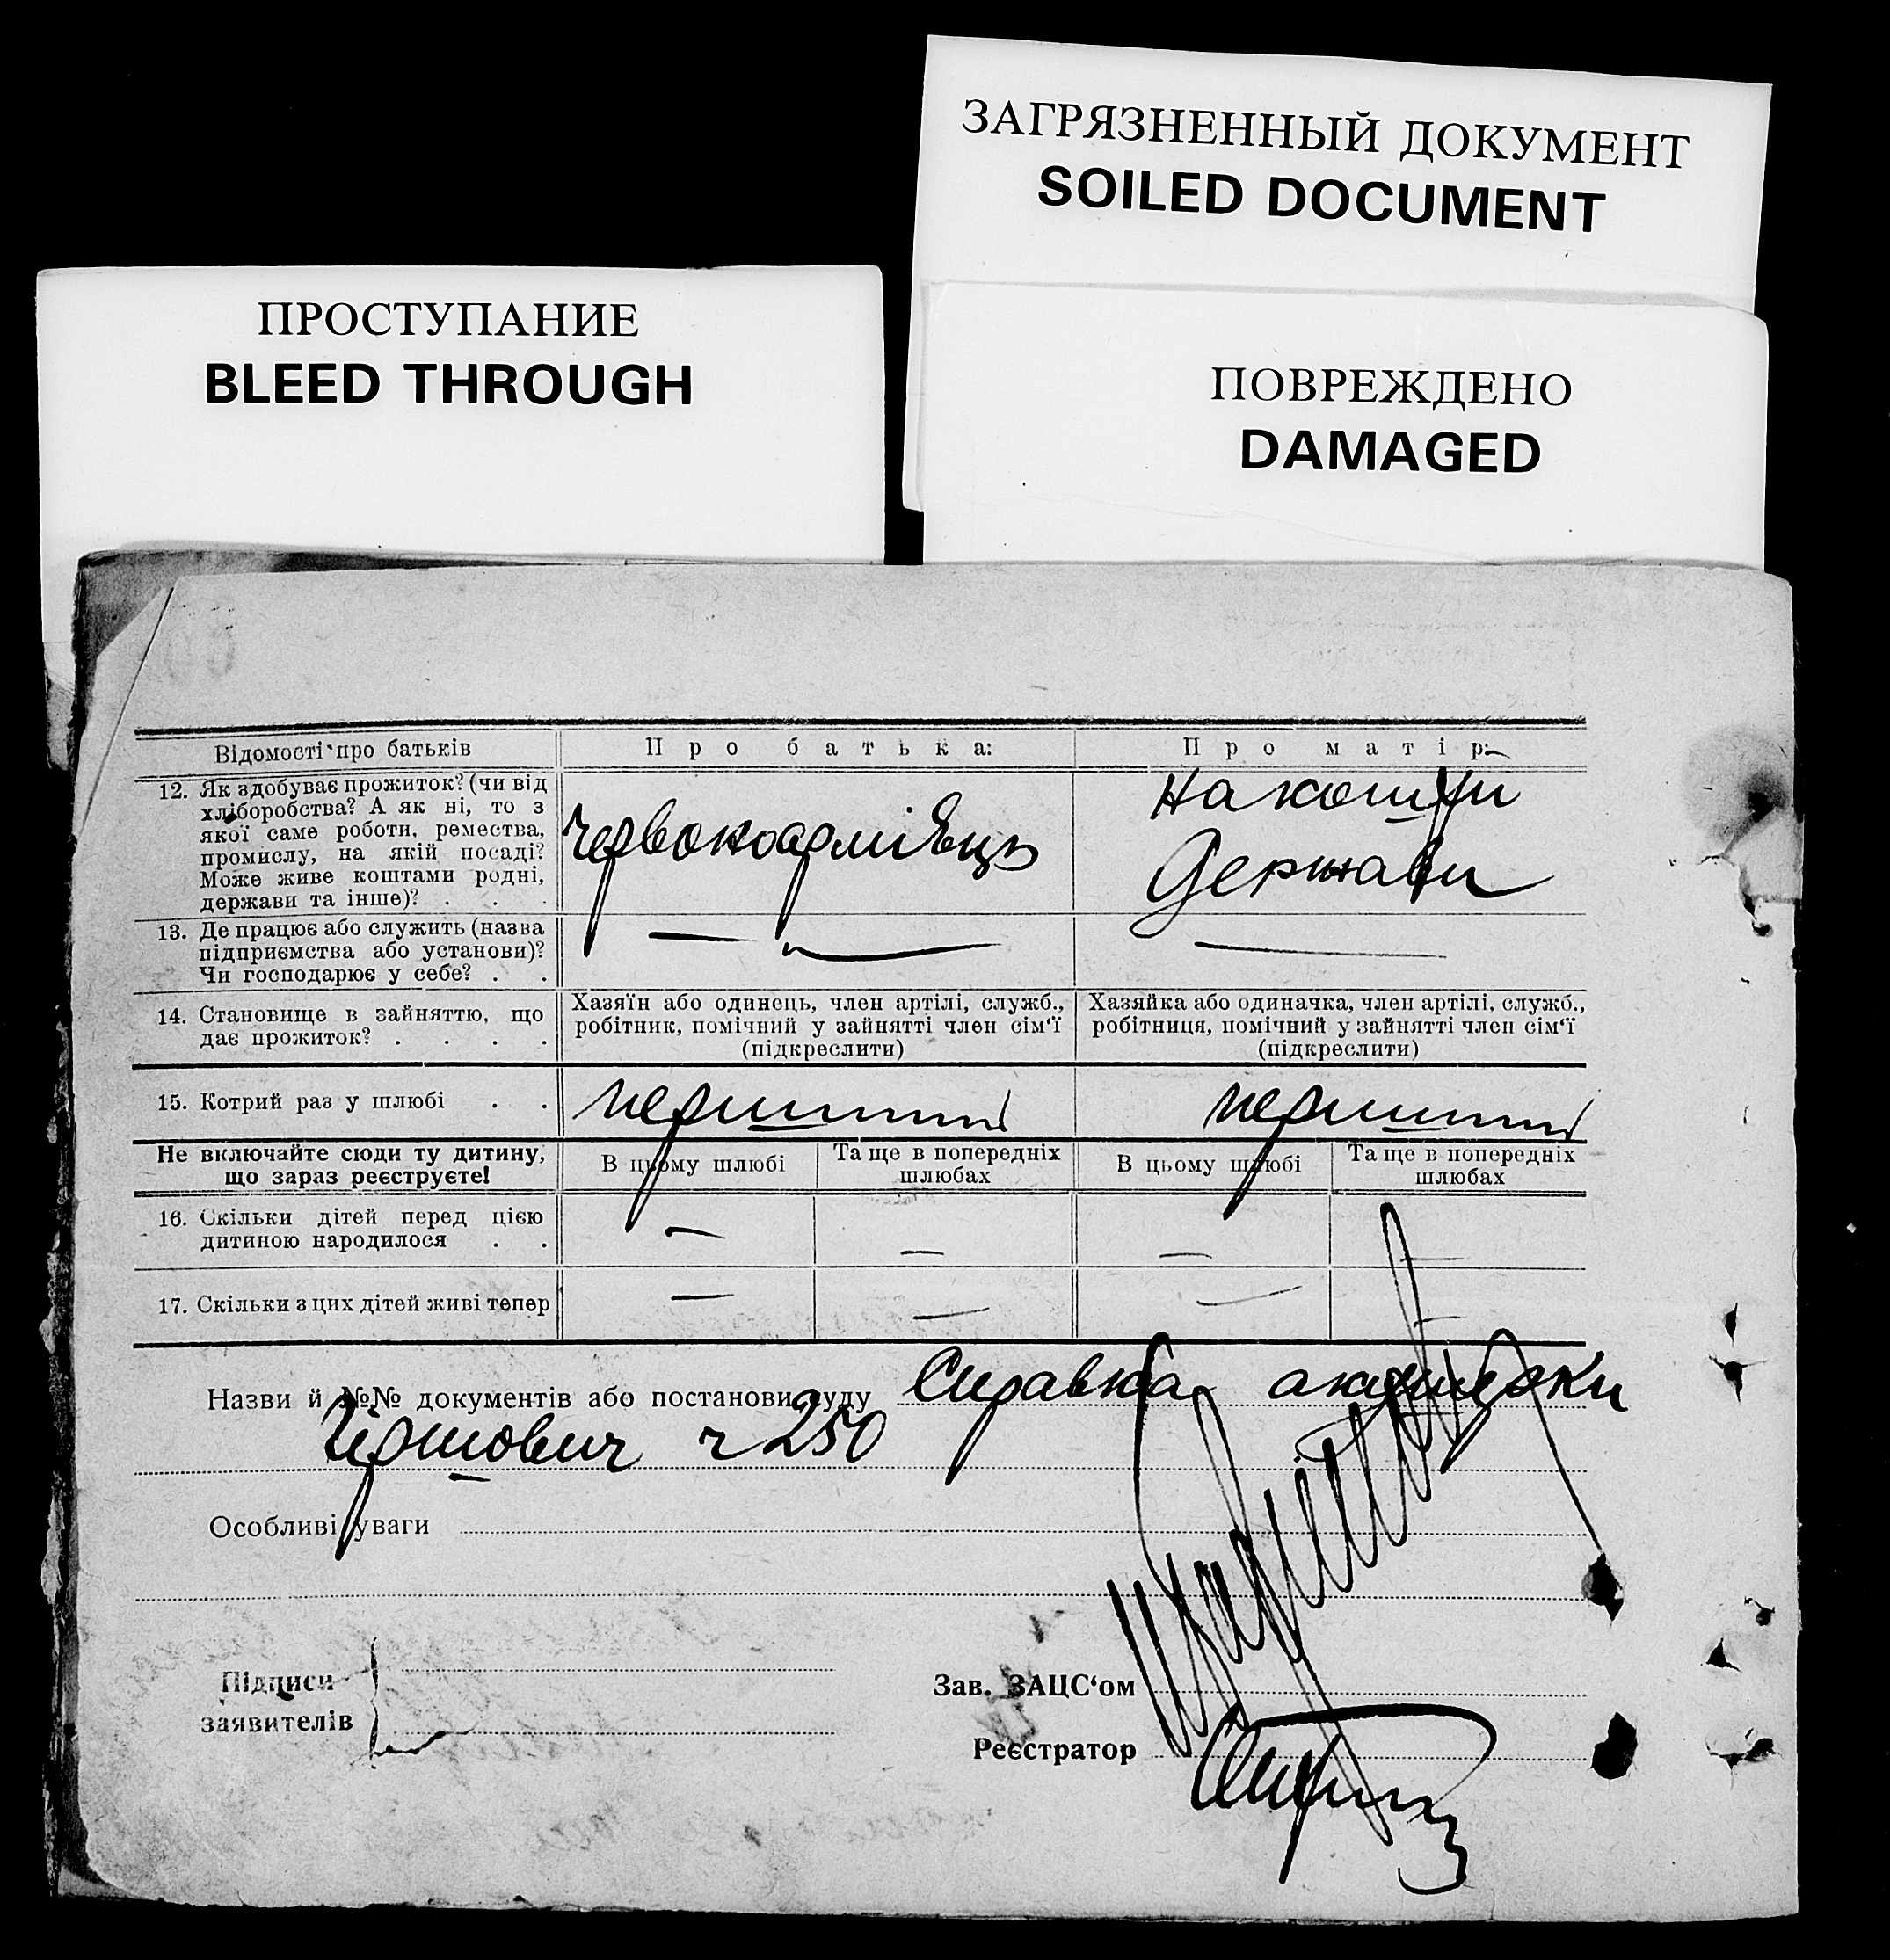 ЗАГРЯЗНЕННЫЙ ДОКУМЕНТ
SOILED DOCUMENT
ПРОСТУПАНИЕ
BLEED THROUGH
ПОВРЕЖДЕНО
DAMAGED
Відомості про батьків
Про батька:
Про матір:
12. Як здобуває прожиток? (чи від
хліборобства? А як ні, то з
якої саме роботи, ремества,
промислу, на якій посаді?
Може живе коштами родні,
держави та інше)? . . .
Червоноармієць
На кошти
Держави
13. Де працює або служить (назва
підприємства або установи)?
Чи господарює у себе? . .
— —
—
14. Становище в зайняттю, що
дає прожиток? . . . .
Хазяїн або одинець, член артілі, служб.,
робітник, помічний у зайнятті член сім'ї
(підкреслити)
Хазяйка або одиначка, член артілі, служб.,
робітниця, помічний у зайнятті член сім'ї
(підкреслити)
15. Котрий раз у шлюбі . .
перший
перший
Не включайте сюди ту дитину,
що зараз реєструєте!
В цьому шлюбі
Та ще в попередніх
шлюбах
В цьому шлюбі
Та ще в попередніх
шлюбах
16. Скільки дітей перед цією
дитиною народилося . .
— — — —
17. Скільки з цих дітей живі тепер
— — — —
Назви й №№ документів або постанови суду Справка акушерки
Гершович ч 250
Особливі уваги
Підписи
заявителів
Зав. ЗАЦС'ом
Реєстратор